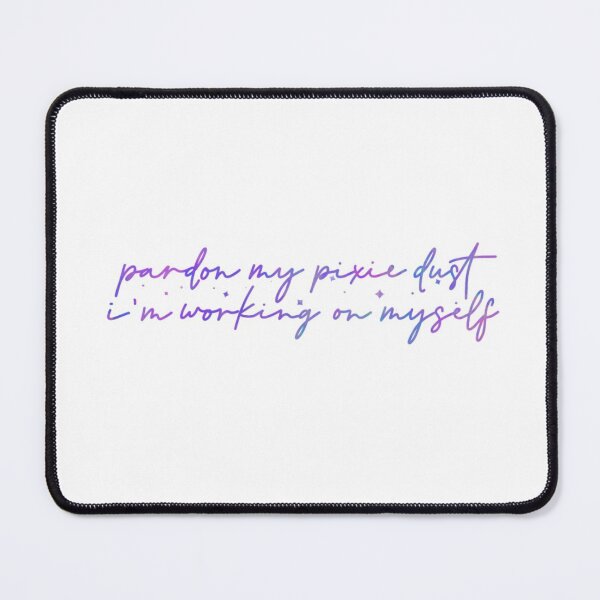 pardon my pixie dust
i'm working on myself